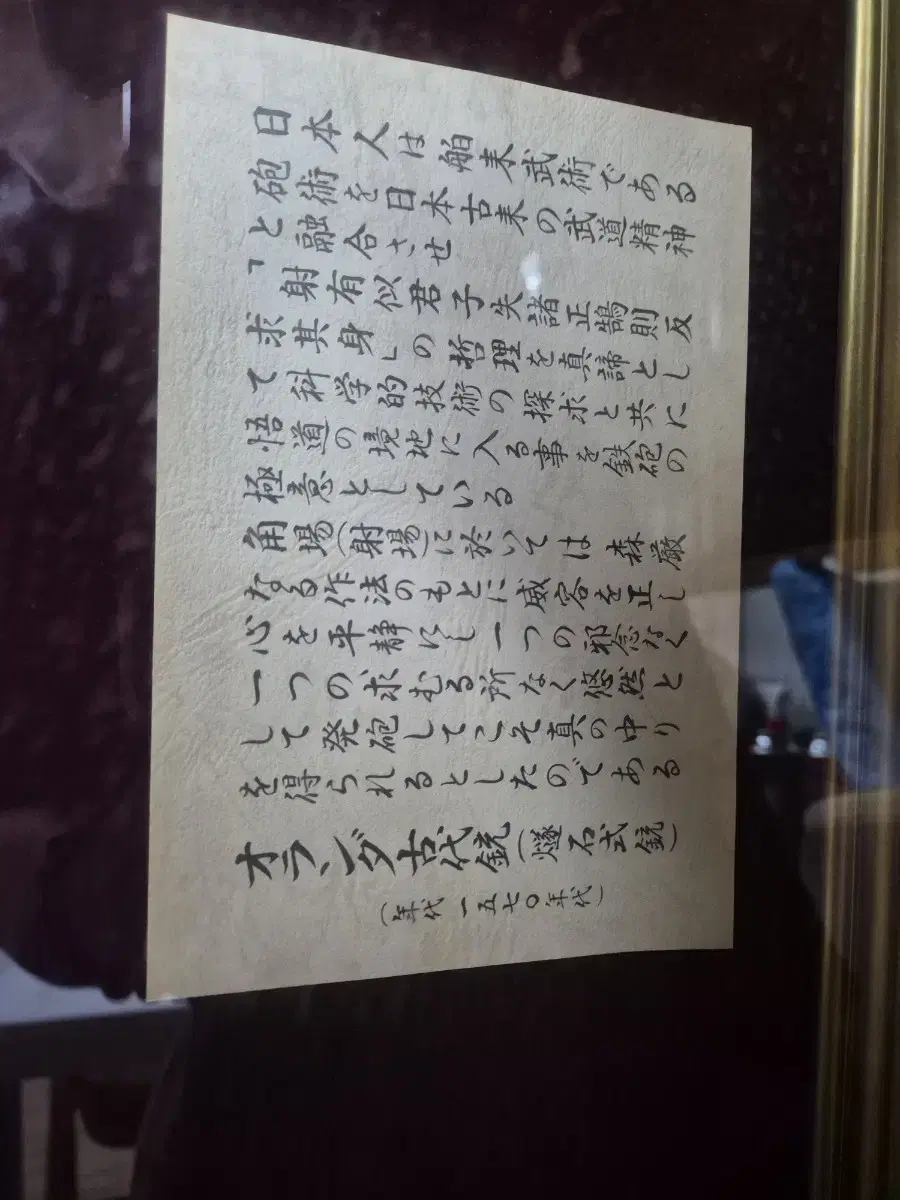 日本人は舶来武術である
砲術を日本古来の武道精神
と融合させ
「射有似君子失諸正鵠則反
求其身」の哲理を真諦とし
て科学的技術の探求と共に
悟道の境地に入る事を鉄砲の
極意としている
角場(射場)に於いては森厳
なる作法のもとに威容を正し
心を平静にし一つの邪念なく
一つの求むる所なく悠然と
して発砲してこそ真の中り
を得られるとしたのである
オランダ古代銃(燧石式銃)
(年代 一五七〇年代)